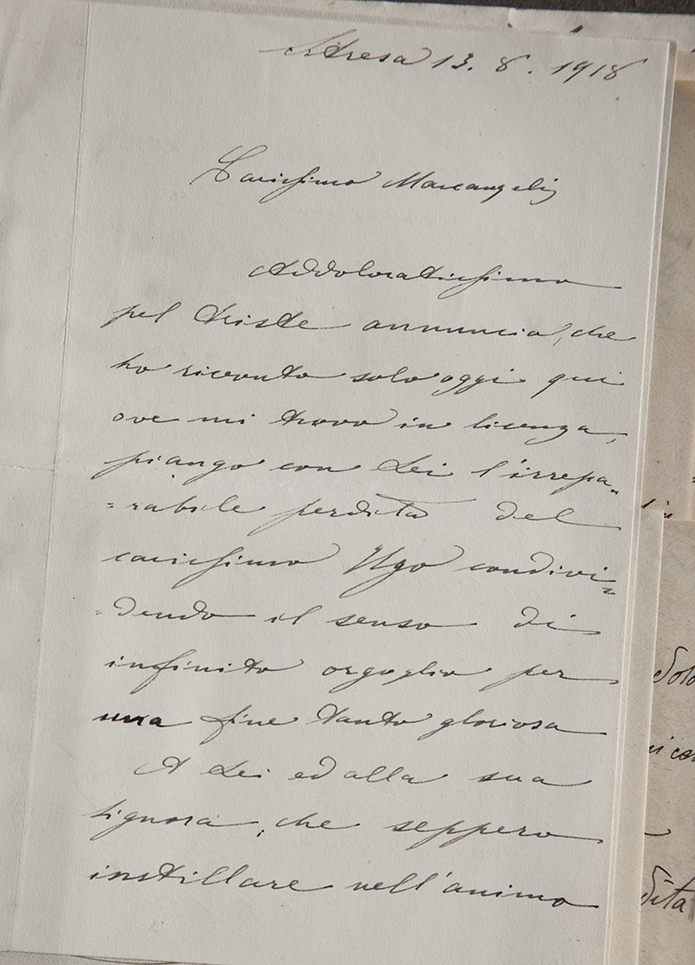 Stresa 13. 8. 1918
Carissimo Marcangeli
Addoloratissimo
pel triste annuncio, che
ho ricevuto solo oggi qui
ove mi trovo in licenza,
piango con Lei l'irrepa-
=rabile perdita del
carissimo Ugo condivi=
=dendo il senso di
infinito orgoglio per
una fine tanto gloriosa
A Lei ed alla sua
Signora, che seppero
instillare nell'animo
dita